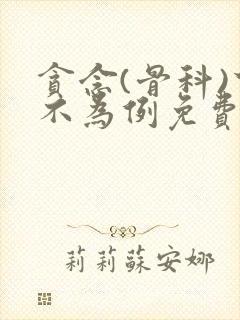 貪念(骨科)
不為例免費
莉莉蘇安娜